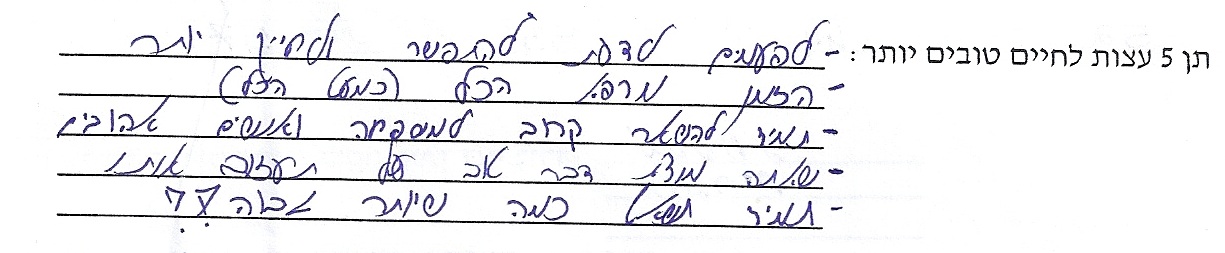 תן 5 עצות לחיים טובים יותר: - לפעמים לדעת להתפשר ולחייך יותר
- הזמן מרפא הכל (כמעט הכל)
- תמיד להשאר קרוב למשפחה ואנשים אהובים
- שאתה מוצא דבר טוב אל תעזוב אותו
- תמיד תשאף כמה שיותר גבוה!?